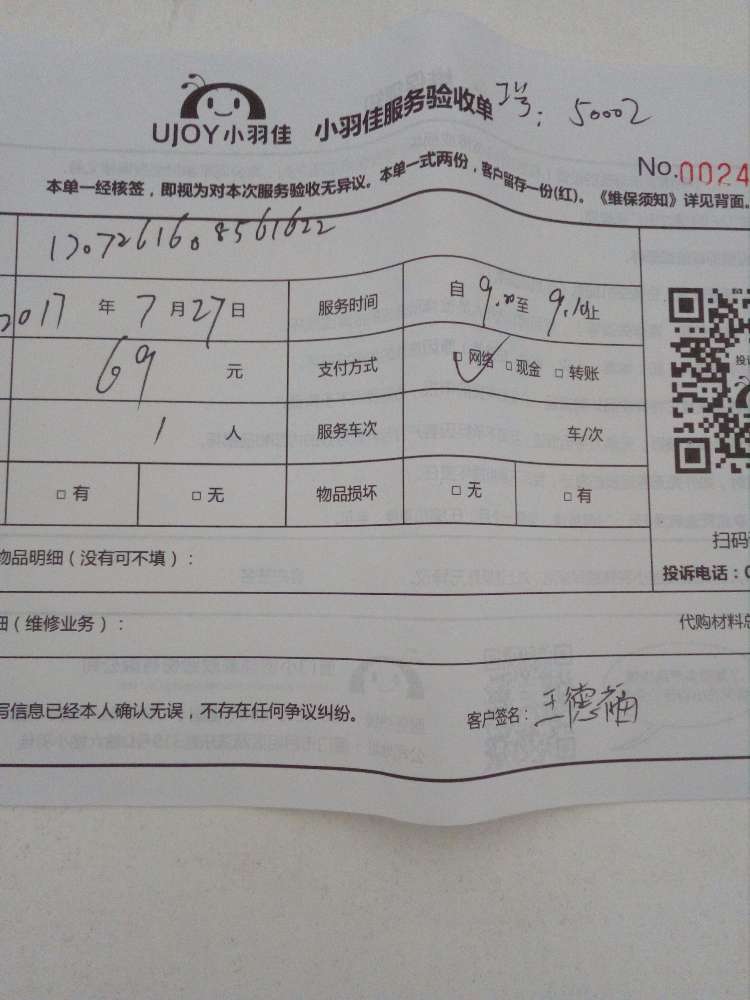 UJOY小羽佳 小羽佳服务验收单 工号: 50002
No.0024
本单一经核签，即视为对本次服务验收无异议。本单一式两份，客户留存一份(红)。《维保须知》详见背面。
2017 年 7 月 27 日 服务时间 自 9.00 至 9.10 止
69 元 支付方式 □ 网络 □ 现金 □ 转账
1 人 服务车次 车/次
□ 有 □ 无 物品损坏 □ 无 □ 有
扫码
物品明细（没有可不填）：
投诉电话：0
（维修业务）：
代购材料
写信息已经本人确认无误，不存在任何争议纠纷。
客户签名：王德福